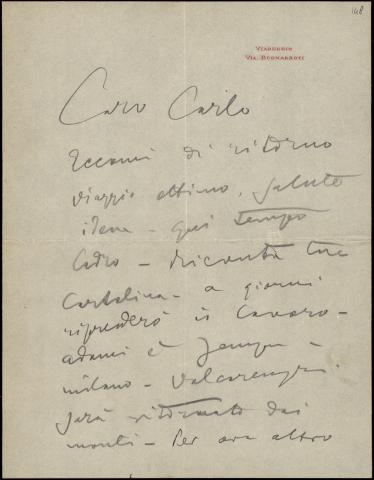 148
VIAREGGIO
VIA BUONARROTI
Caro Carlo
Eccomi di ritorno
viaggio ottimo. Salute
idem - qui tempo
ladro - ricevuta tua
Cartolina - a giorni
riprenderò il lavoro -
adami è sempre a
milano - Valcarenghi
sarà ritornato dai
monti - Per ora altro